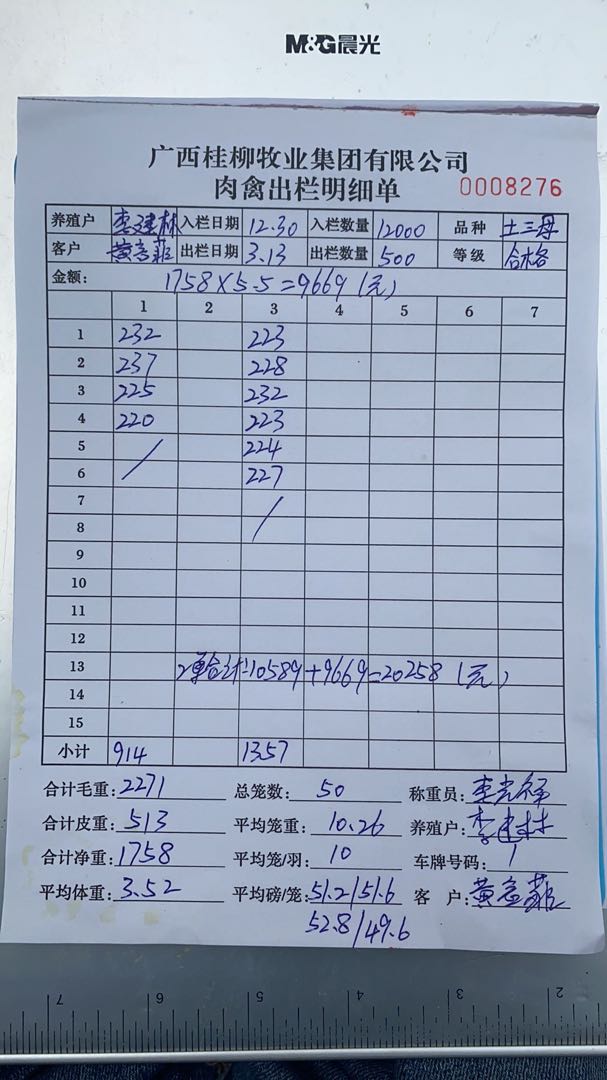 M&G晨光
广西桂柳牧业集团有限公司
肉禽出栏明细单 0008276
养殖户 李建林 入栏日期 12.30 入栏数量 12000 品种 土三号
客户 黄彦菲 出栏日期 3.13 出栏数量 500 等级 合格
金额: 1758×5.5=9669(元)
1 2 3 4 5 6 7
1 232 223
2 237 228
3 225 232
4 220 223
5 / 224
6 227
7 /
8
9
10
11
12
13 2单合计:10589+9669=20258(元)
14
15
小计 914 1357
合计毛重: 2271 总笼数: 50 称重员:
合计皮重: 513 平均笼重: 10.26 养殖户: 李建林
合计净重: 1758 平均笼/羽: 10 车牌号码: 1
平均体重: 3.52 平均磅/笼: 51.2/51.6 客 户: 黄彦菲
52.8/49.6
7 6 5 4 3 2